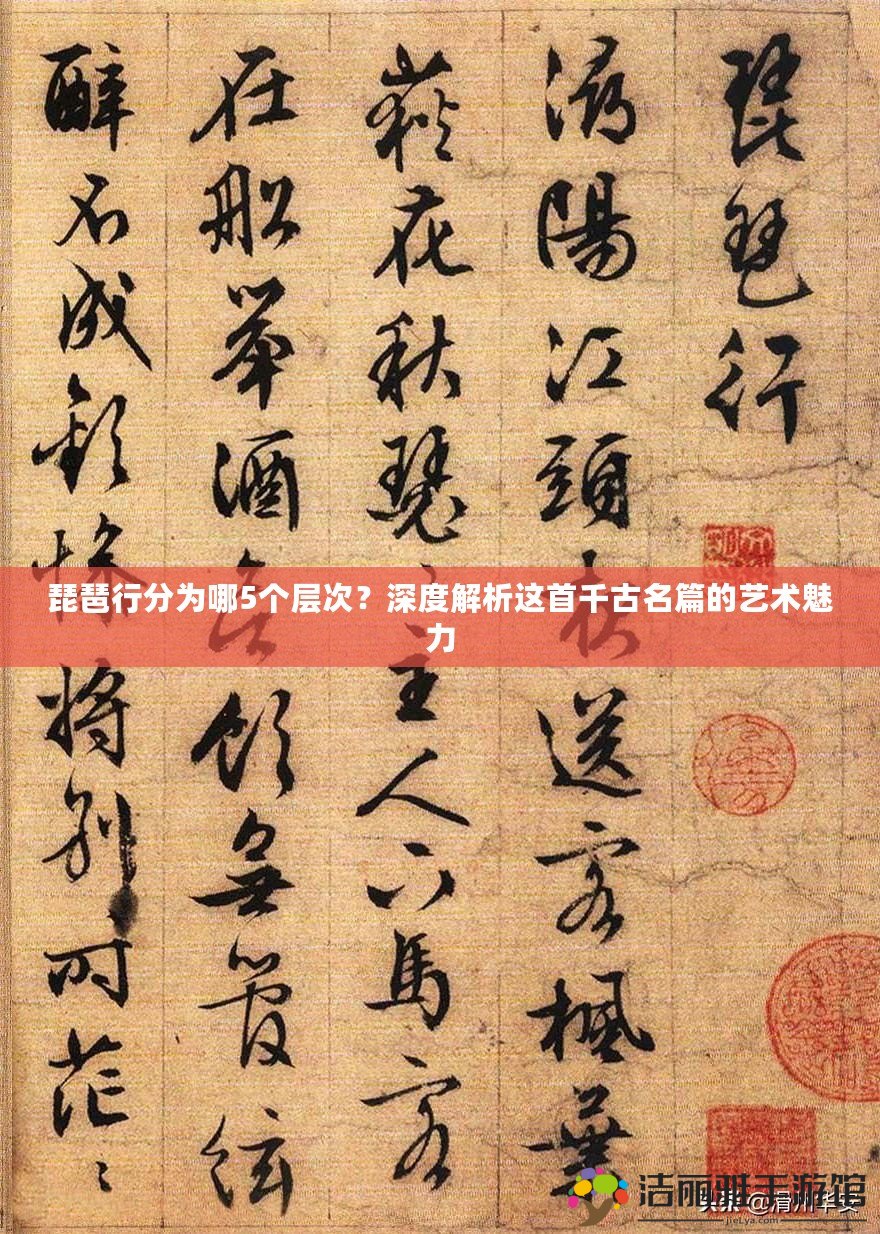 琵琶行
潯陽江頭夜送客楓葉
荻花秋瑟〻主人下馬客
在船舉酒欲飲無管絃
醉不成歡慘將別時茫〻
琵琶行分为哪5个层次？深度解析这首千古名篇的艺术魅
力
洁丽雅手游馆
jieLya.com
头条 @滑州华安